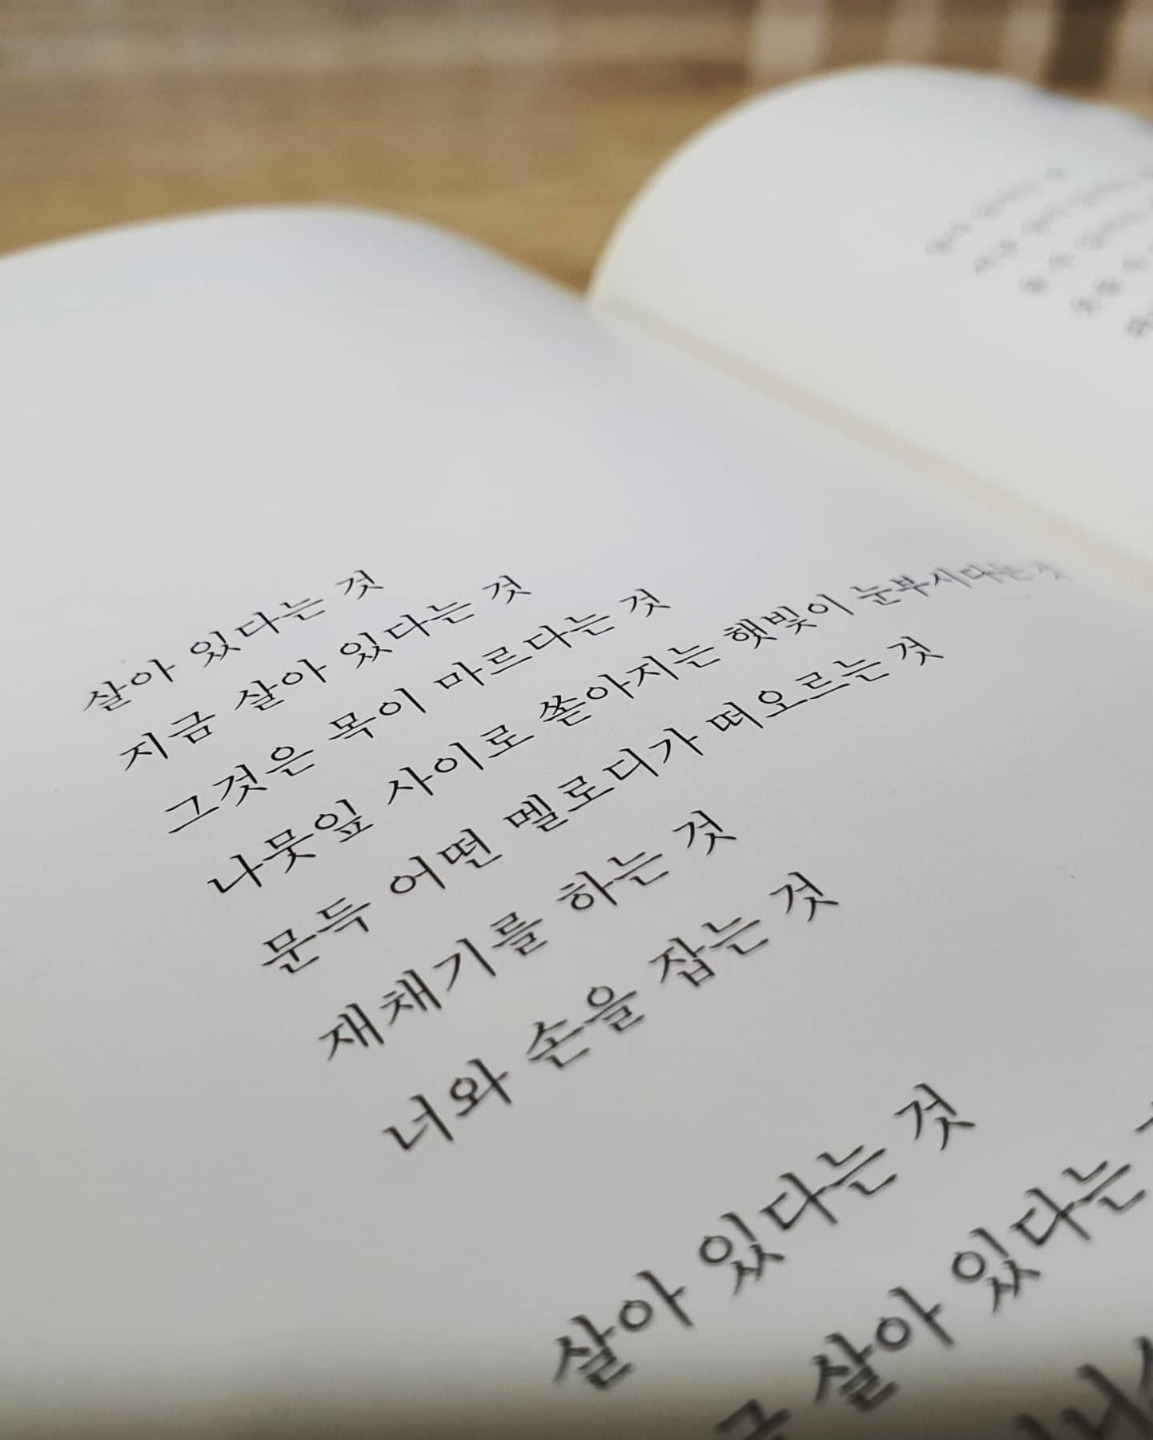 살아 있다는 것
지금 살아 있다는 것
그것은 목이 마르다는 것
나뭇잎 사이로 쏟아지는 햇빛이 눈부시다는 것
문득 어떤 멜로디가 떠오르는 것
재채기를 하는 것
너와 손을 잡는 것
살아 있다는 것
살아 있다는